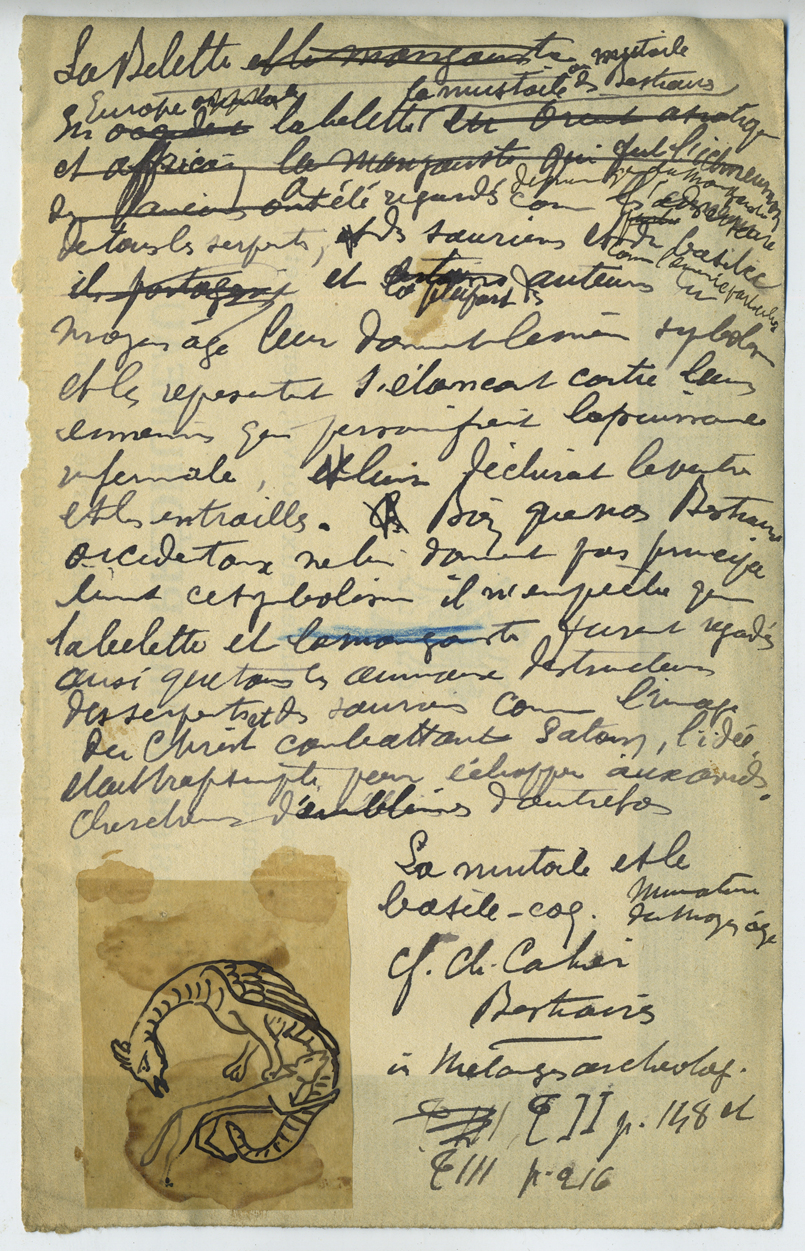 La Belette et la mangouste ou mustoile
la mustoile des Bestiaires
En Europe occident la belette en Orient asiatique
et africain, la mangouste qui
des anciens ont été regardés comme les
de tous les serpents, et des sauriens et du basilic
il partage et la plupart des auteurs du
moyen âge leur donnent le même symbolisme
et les représentent s'élançant contre leurs
ennemis qui personnifient la puissance
infernale, et leur déchirant le ventre
et les entrailles. Bien que nos Bestiaires
occidentaux ne lui donnent pas principa
lement ce symbolisme il n'empêche que
la belette et la mangouste furent regardés
ainsi que tous les animaux destructeurs
des serpents et des sauriens comme l'image
du Christ combattant Satan, l'idée
était trop simple pour échapper aux avides
chercheurs d'emblèmes d'autrefois
La mustoile et le
basilic-coq. Miniature
du moyen âge
cf. Ch. Cahier
Bestiaires
in Mélanges archéolog.
T II p. 148 et
T III p. 216